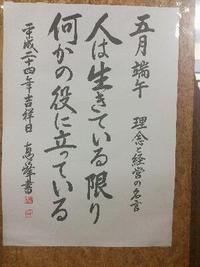 五月端午　理念と経営の名言
人は生きている限り
何かの役に立っている
平成二十四年吉祥日　恵峰書